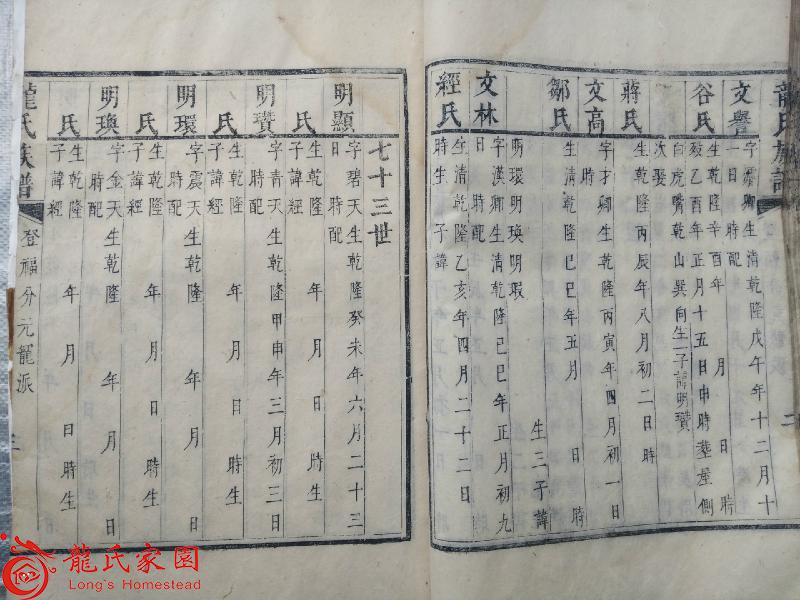 龍氏族譜
二
文譽
字爵卿生清乾隆戊午年十二月十
一日 時配
谷氏
生乾隆辛酉年 月 日 時
歿乙酉年正月十五日申時葬屋側
白虎嘴乾山巽向生一子諱明瓚
次娶
蔣氏
生乾隆丙辰年八月初二日時
文高
字才卿生乾隆丙寅年四月初一日
時
鄒氏
生清乾隆己巳年五月 日 時
生三子諱
明環明瑍明瑕
文林
字漢卿生清乾隆己巳年正月初九
日 時配
經氏
生清乾隆乙亥年四月二十二日
時生 子諱
七十三世
明顯
字碧天生乾隆癸未年六月二十三
日 時配
氏
生乾隆 年 月 日 時生
子諱經
明瓚
字青天生乾隆甲申年三月初三日
時配
氏
生乾隆 年 月 日 時生
子諱經
明環
字震天生乾隆 年 月 日
時配
氏
生乾隆 年 月 日 時生
子諱經
明瑍
字金天生乾隆 年 月 日
時配
氏
生乾隆 年 月 日時生
子諱經
龍氏族譜
登福分元龍派
三
龍氏家園
Long's Homestead